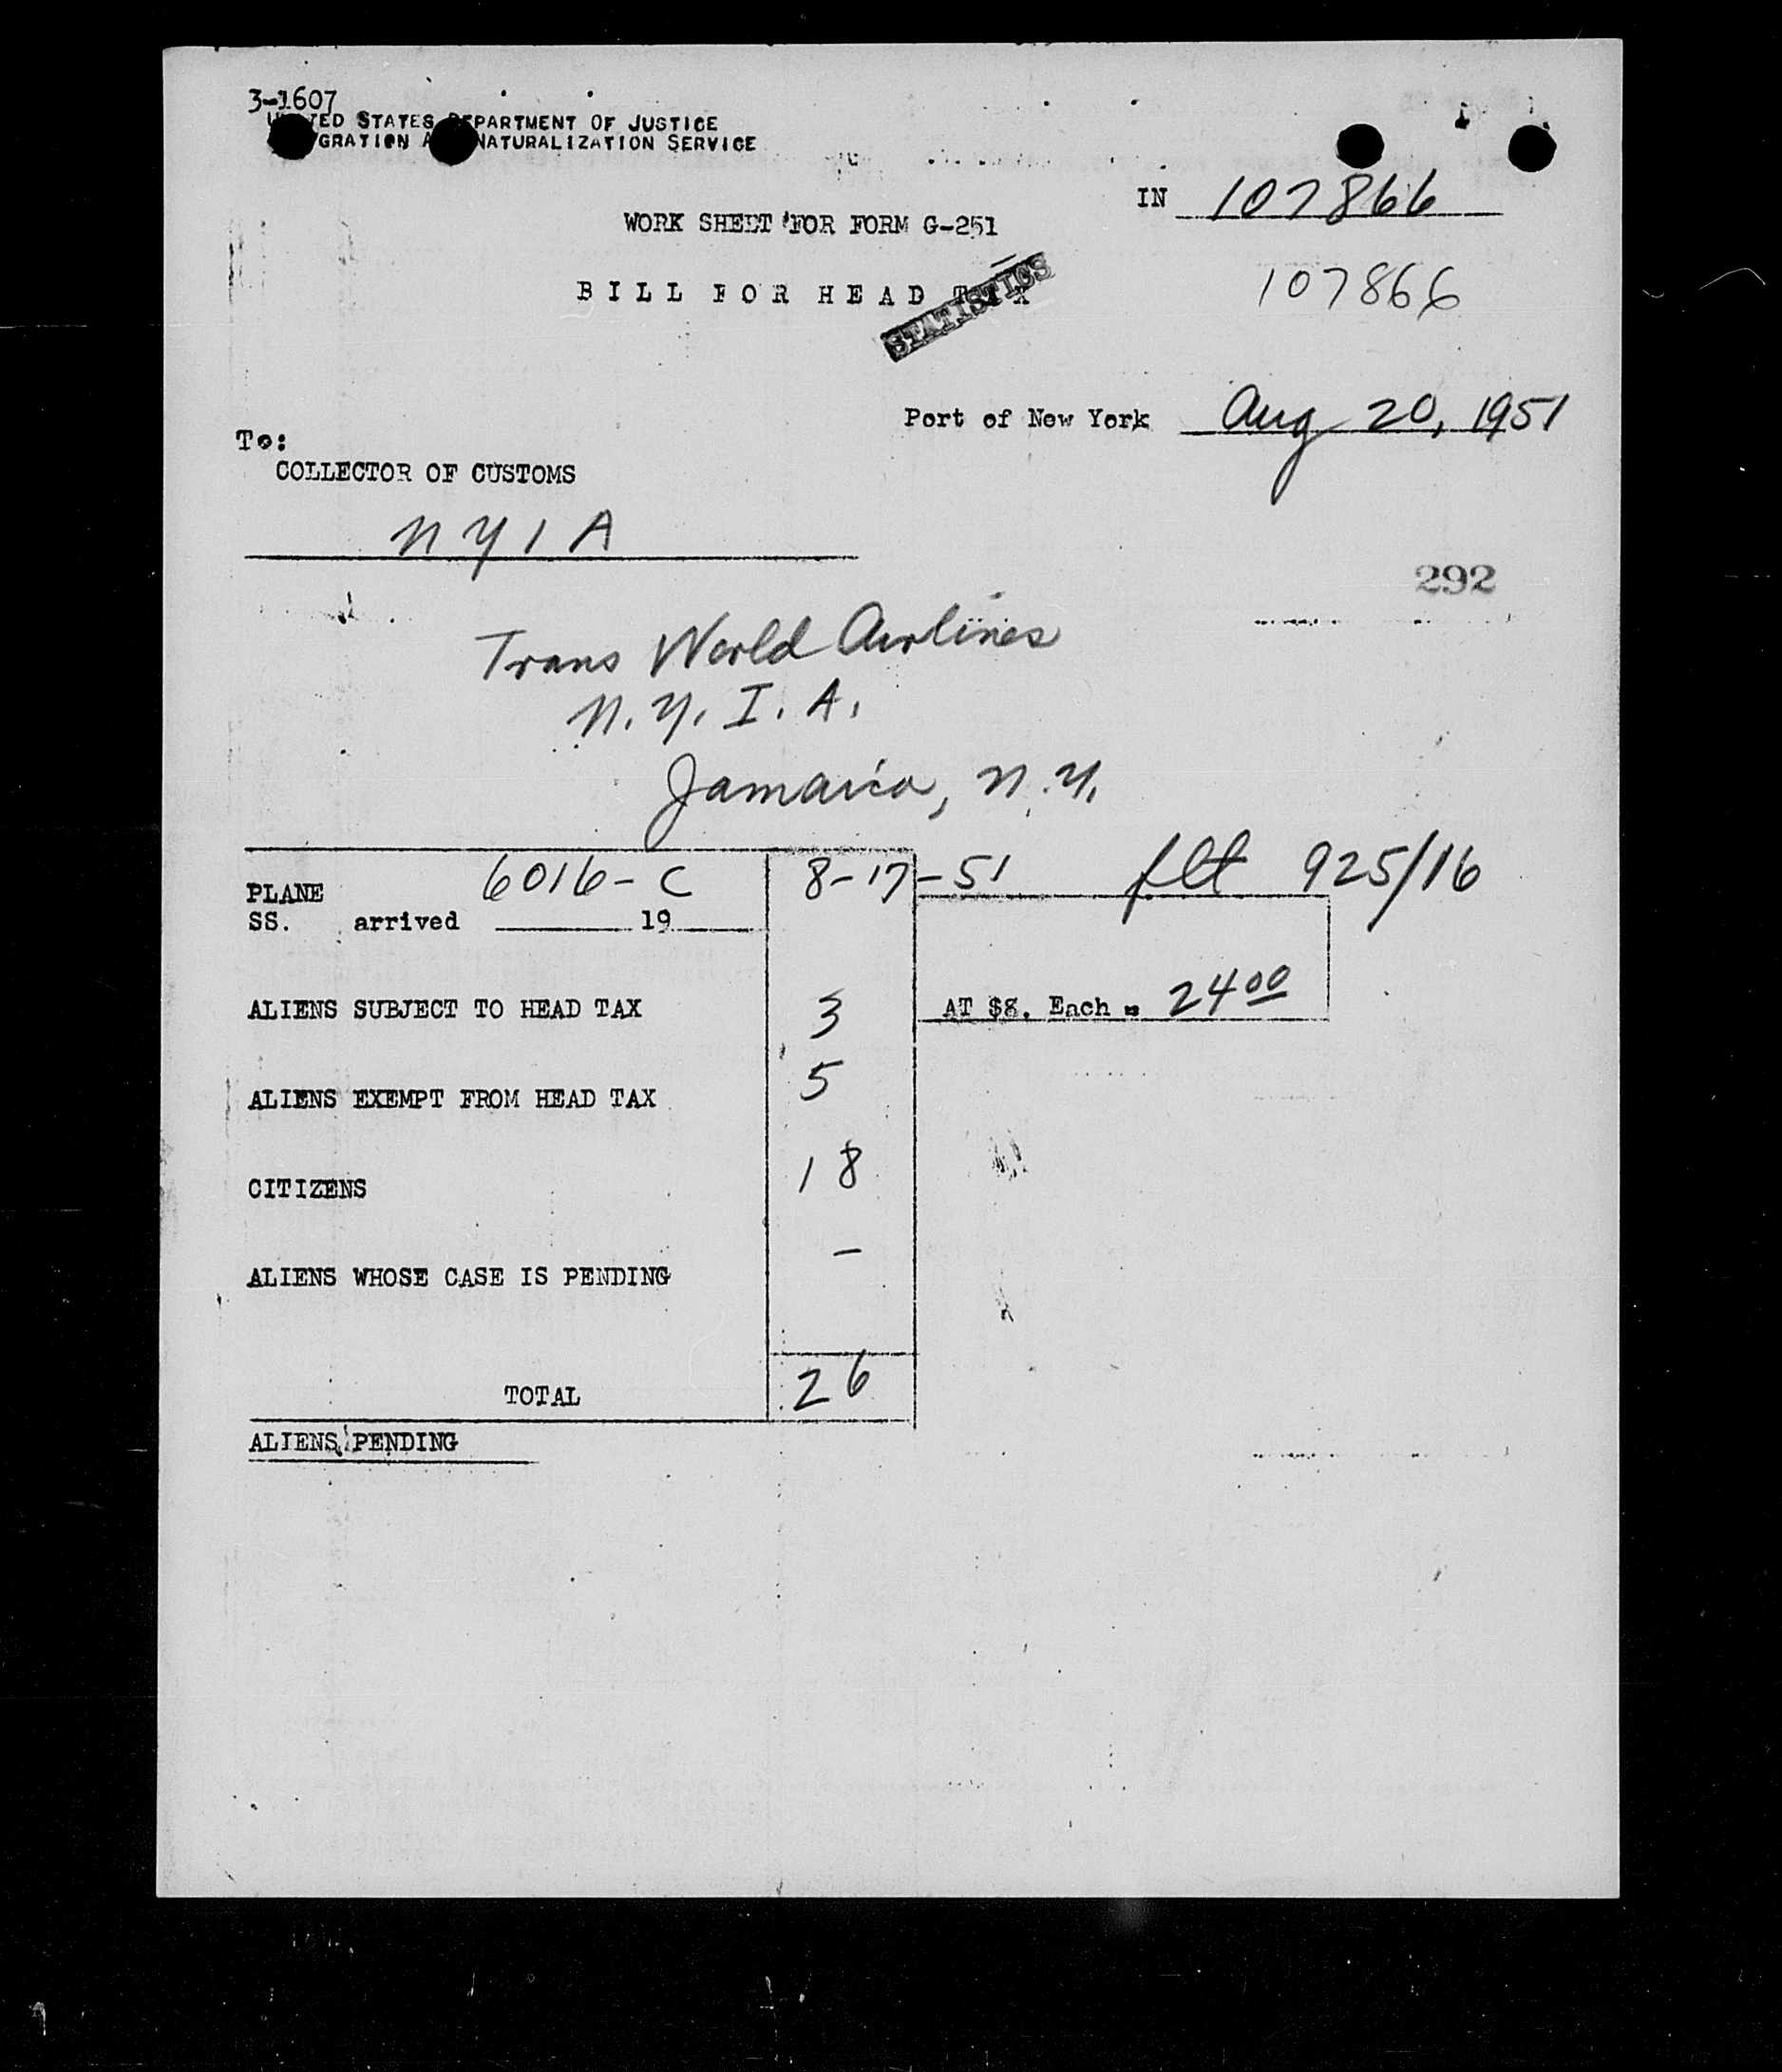 3-1607
UNITED STATES DEPARTMENT OF JUSTICE
IMMIGRATION AND NATURALIZATION SERVICE
IN 107866
WORK SHEET FOR FORM G-251
107866
BILL FOR HEAD TAX
STATISTICS
Port of New York Aug 20, 1951
To:
COLLECTOR OF CUSTOMS
NYIA
292
Trans World Airlines
N.Y.I.A.
Jamaica, N.Y.
6016-C 8-17-51 flt 925/16
PLANE
SS. arrived 19
ALIENS SUBJECT TO HEAD TAX 3 AT $8. Each = 24 00
ALIENS EXEMPT FROM HEAD TAX 5
CITIZENS 18
ALIENS WHOSE CASE IS PENDING -
TOTAL 26
ALIENS PENDING